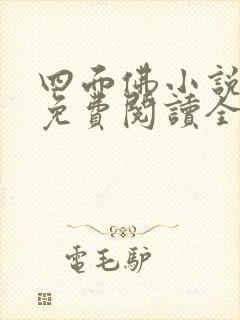 四面佛小說
免費閱讀全
電毛驴